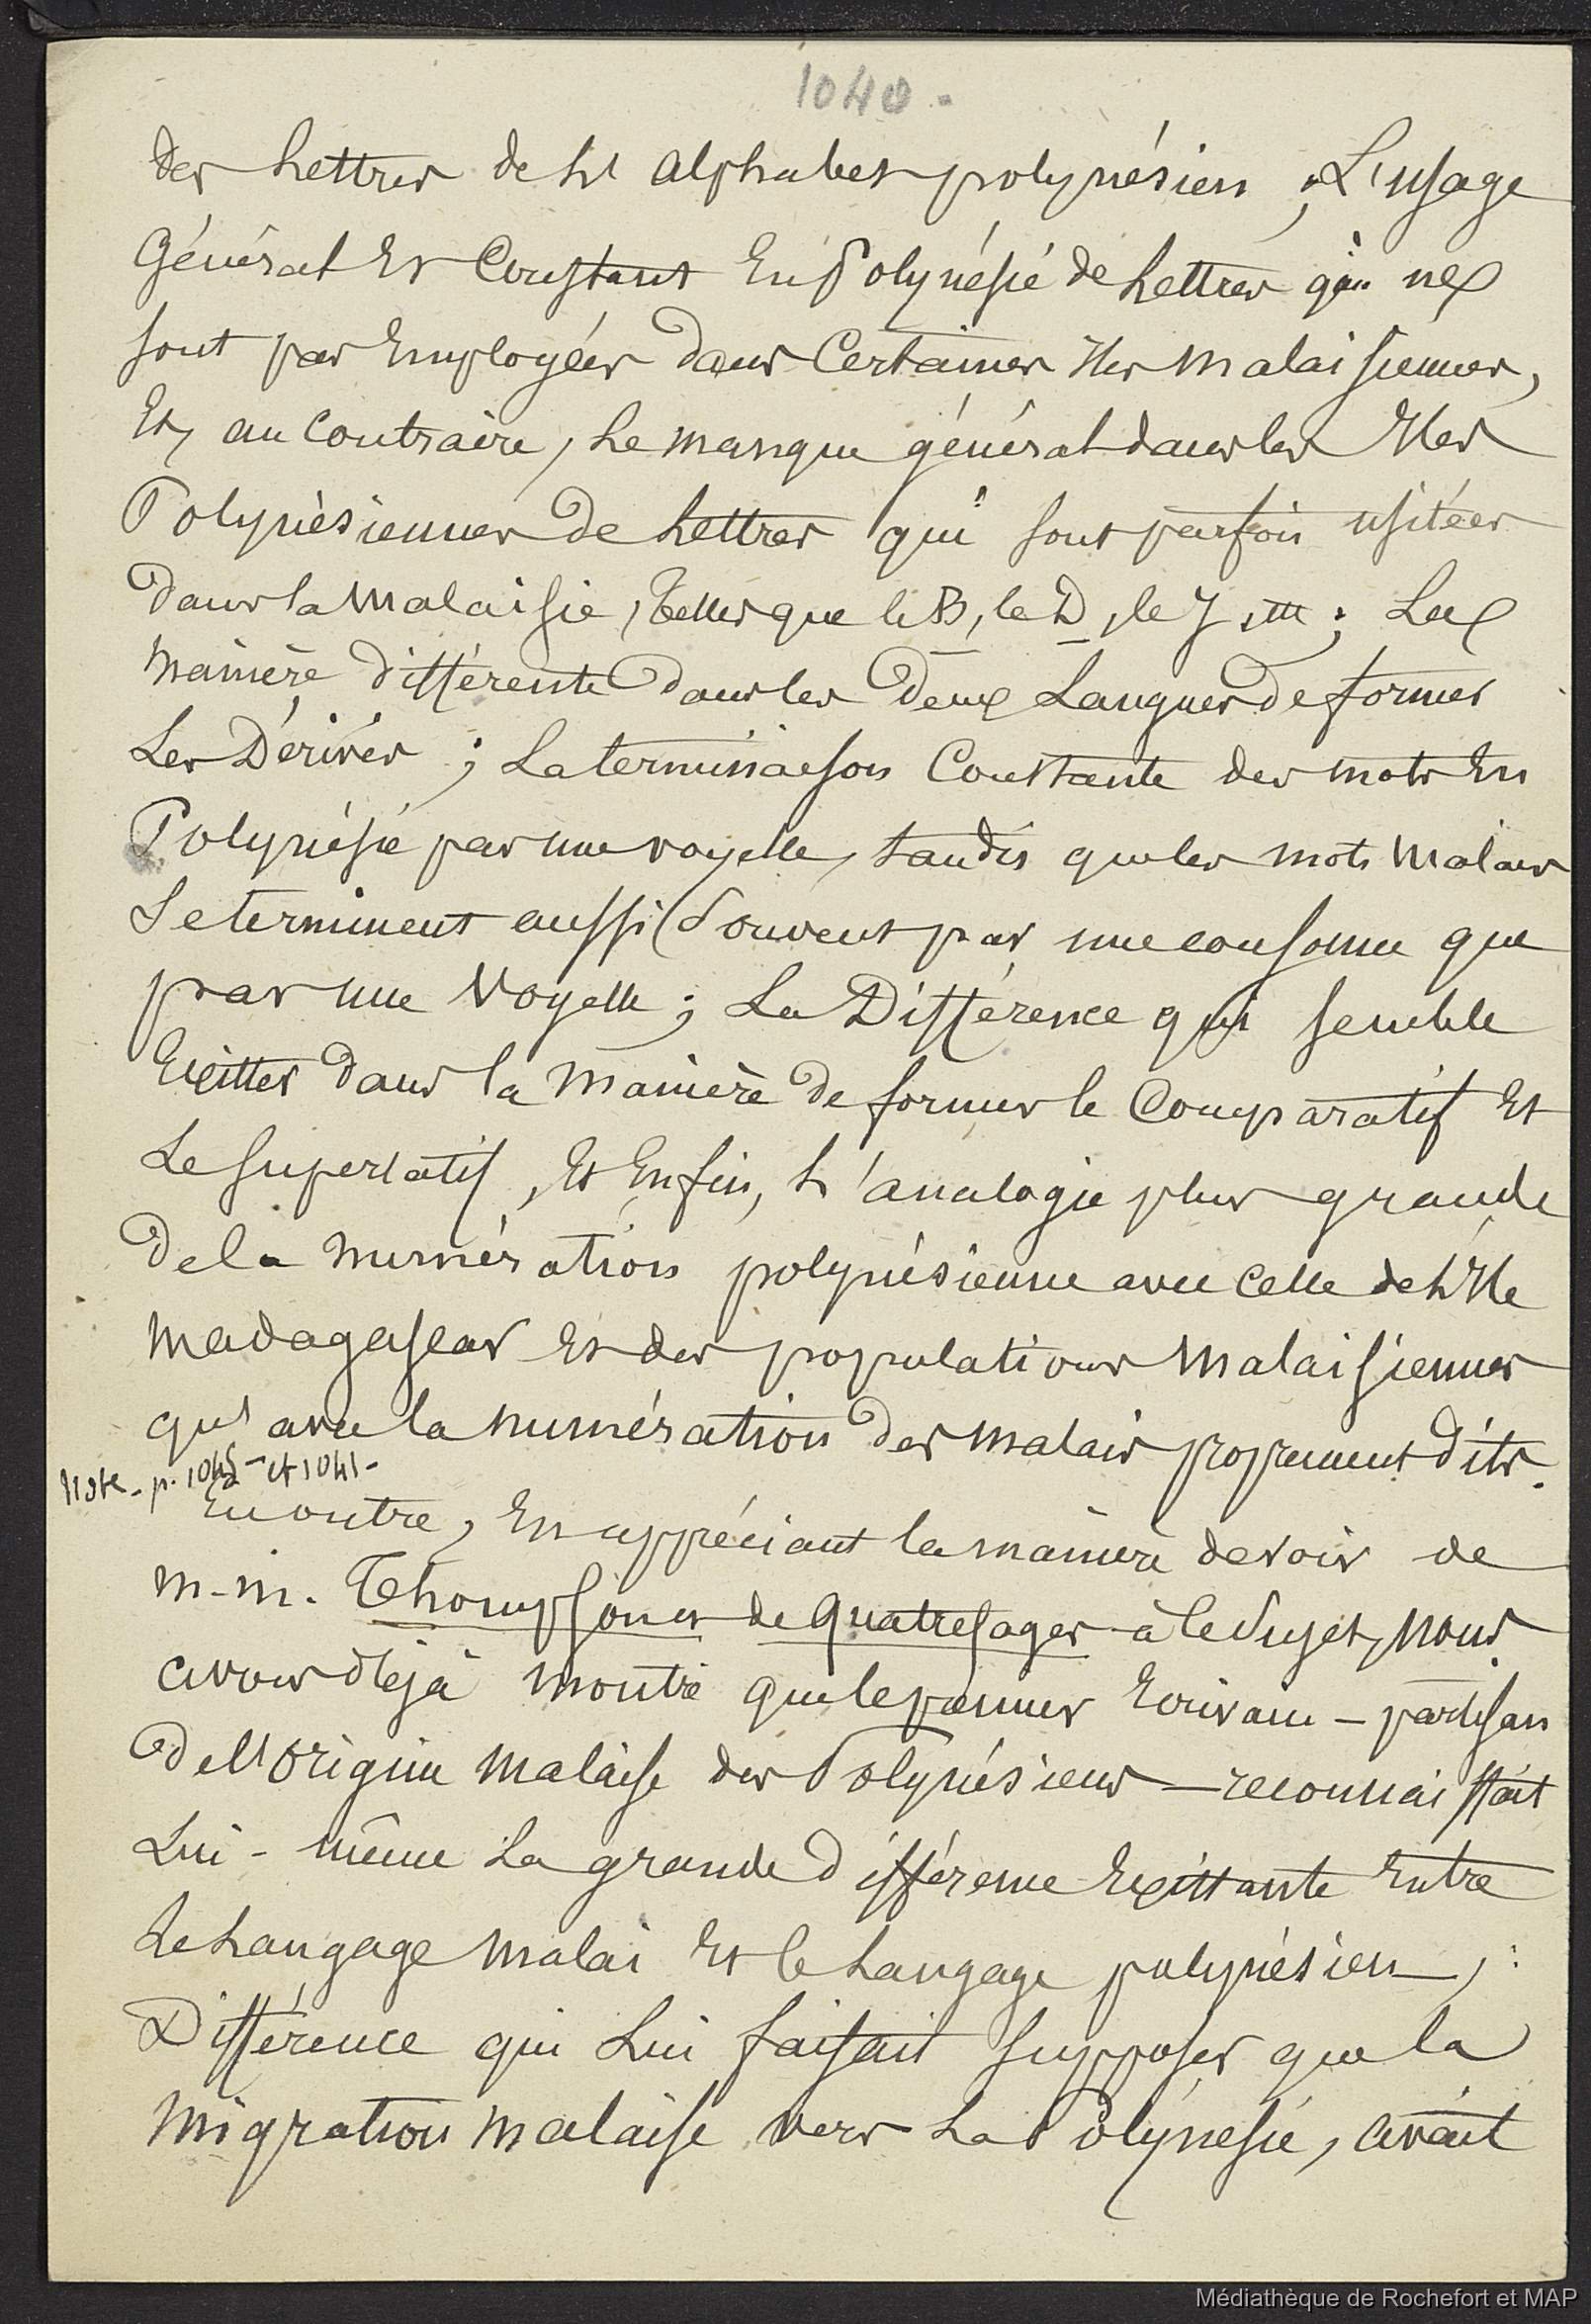 1040.
des Lettres de l'alphabet polynésien ; L'usage
Général Et Constant En Polynésie de Lettres qui ne
sont pas Employées dans Certaines Iles malaisiennes,
Et, au Contraire, Le manque général dans les Iles
Polynésiennes de Lettres qui sont parfois usitées
dans la Malaisie, telles que le B, le D, le J, etc ; La
manière différente dans les deux Langues de former
Les Dérivés ; La terminaison Constante des mots En
Polynésie par une voyelle, tandis que les mots malais
Se terminent aussi souvent par une consonne que
par une voyelle ; La Différence qui semble
Exister dans la manière de former le Comparatif Et
Le superlatif, Et Enfin, L'analogie plus grande
De la numération polynésienne avec celle de L'Ile
madagascar Et des populations malaisiennes
qu'avec la numération des malais proprement dits.
Note - p. 1045 - et 1041 -
En outre, En appréciant la manière de voir de
m.m. Thompson et de Quatrefages à ce Sujet, nous
avons déjà montré que le premier Ecrivain - partisan
de l'origine malaise des Polynésiens - reconnaissait
Lui-même La grande différence Existante Entre
Le Langage malai Et le Langage polynésien ;
Différence qui Lui faisait supposer que la
migration malaise vers La Polynésie, avait
Médiathèque de Rochefort et MAP